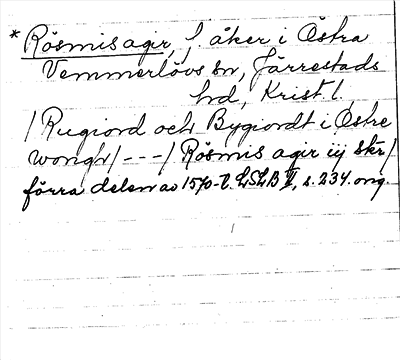 * Rösmis agir, f. åker i Östra
Vemmerlövs sn, Järrestads
hd, Krist l.
/Rugiord och Bygiordt i Östre
wongh/---/Rösmis agir iij skr/
förra delen av 1570-t. LSLB II, s. 234. ong.